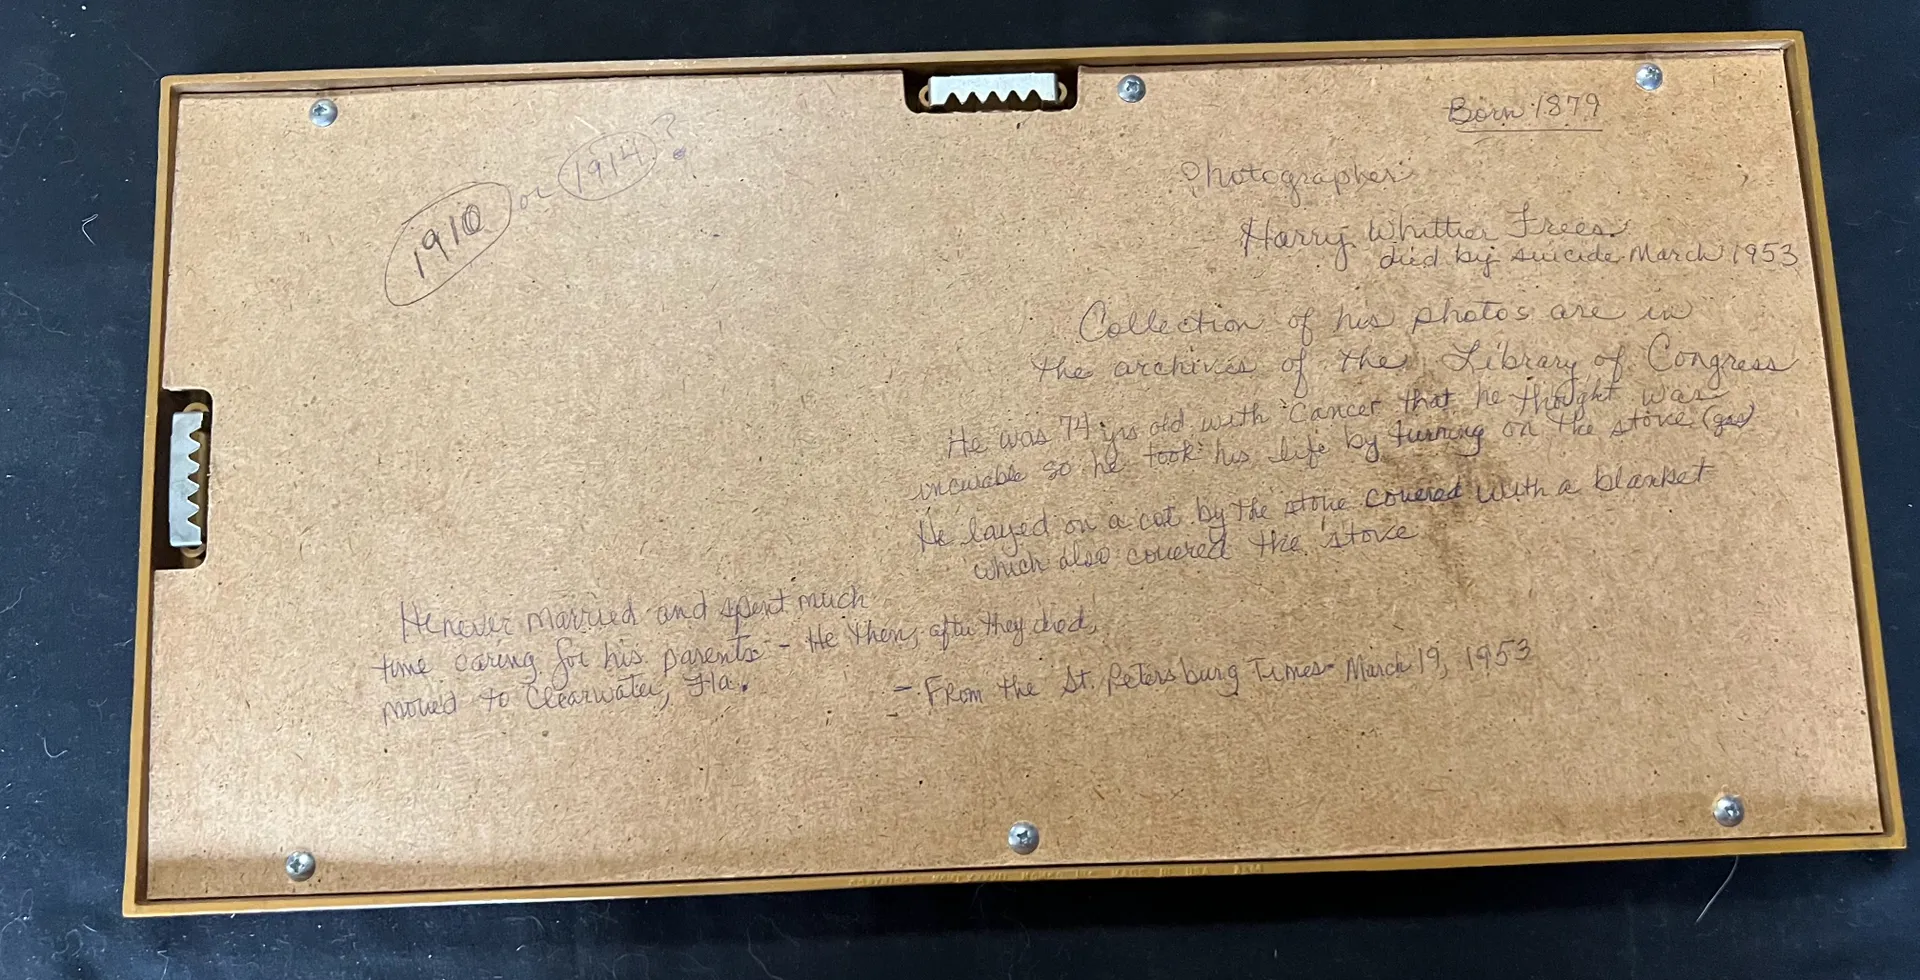 1910 or 1914?
Born 1879
Photographer
Harry Whittier Frees
died by suicide March 1953
Collection of his photos are in
the archives of the Library of Congress
He was 74 yrs old with Cancer that he thought was
incurable so he took his life by turning on the stove (gas)
He layed on a cot by the stove covered with a blanket
which also covered the stove
He never married and spent much
time caring for his parents - He then, after they died,
moved to Clearwater, Fla.
- From the St. Petersburg Times - March 19, 1953